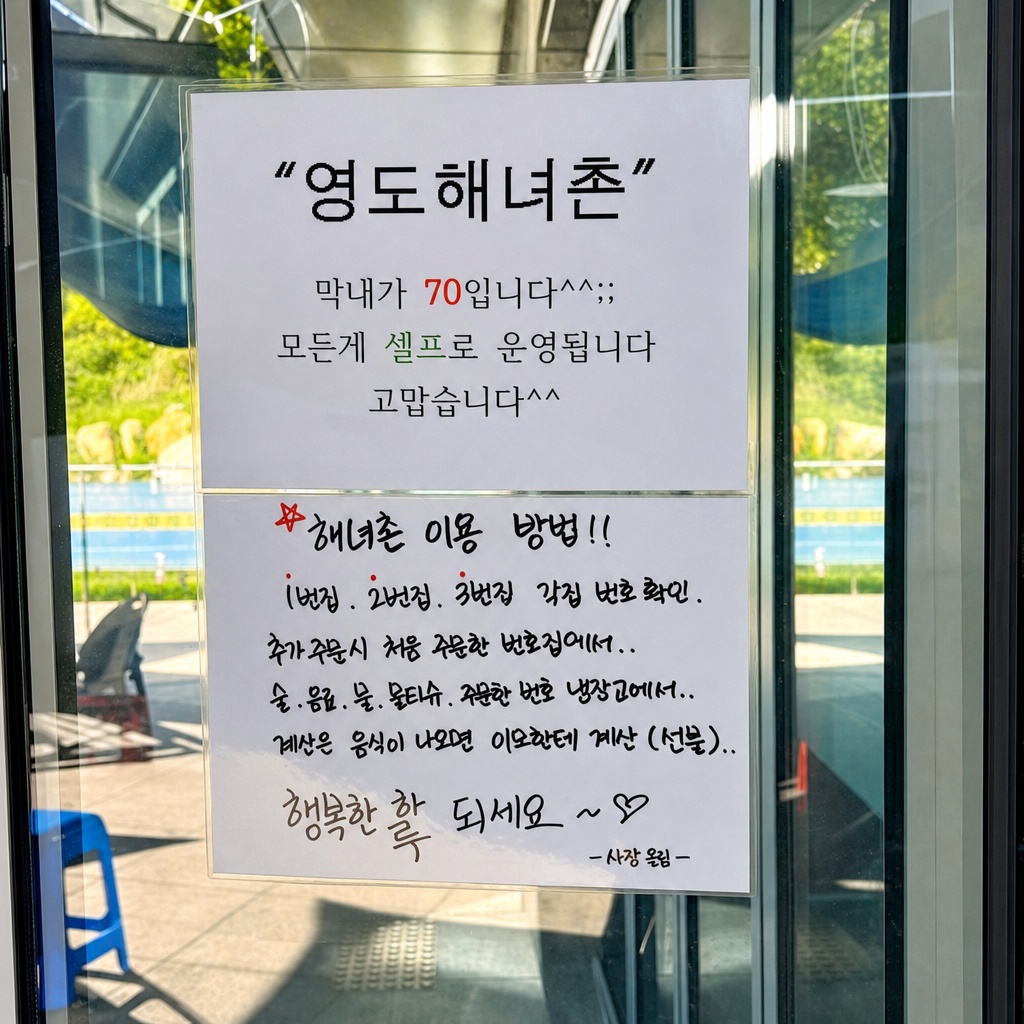 “영도해녀촌”
막내가 70입니다^^;;
모든게 셀프로 운영됩니다
고맙습니다^^
해녀촌 이용 방법!!
1번집. 2번집. 3번집 각집 번호 확인.
추가 주문시 처음 주문한 번호집에서..
술. 음료. 물. 물티슈. 주문한 번호 냉장고에서..
계산은 음식이 나오면 이모한테 계산 (선불)..
행복한 하루 되세요 ~ ♡
- 사장 올림 -